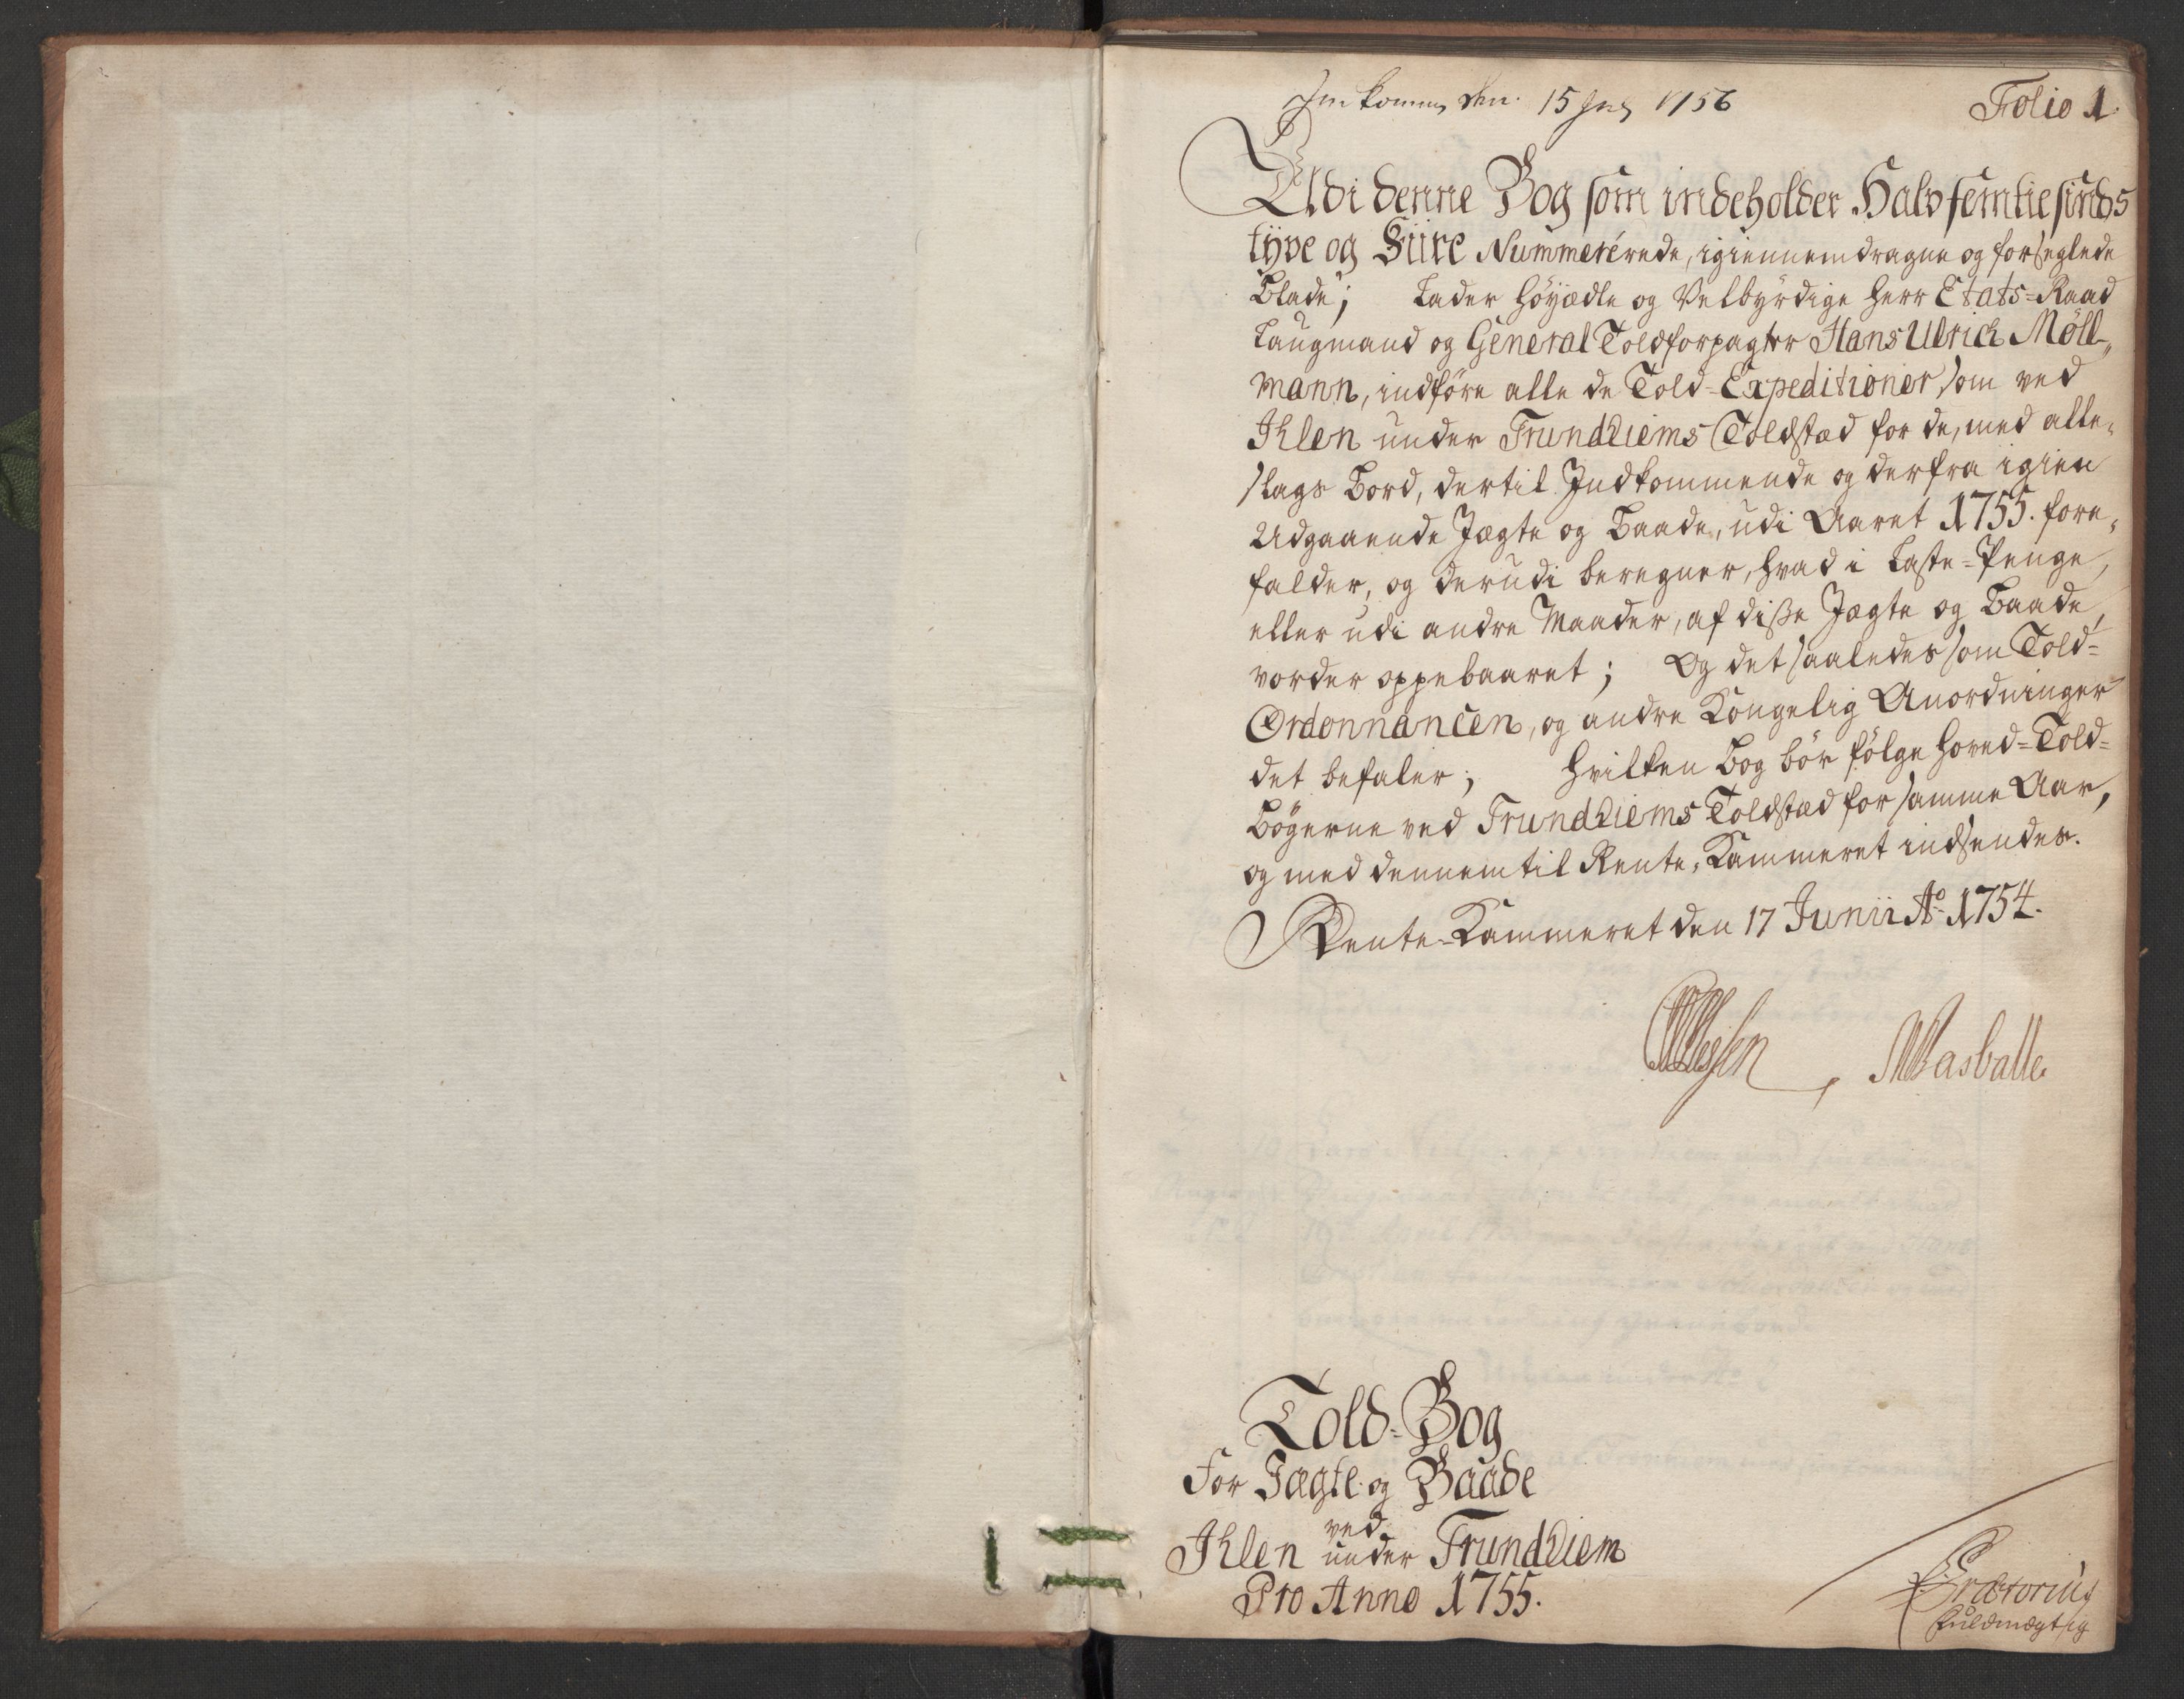 Indkom den 15 1756
Folio 1.
Udi denne Bog som indeholder Halvfemtiesinds
tÿve og Fiire Nummerérede, igiennemdragne og forseglede
Blade; Lader Höÿædle og Velbÿrdige Herr Etats-Raad
Laugmand og General Toldforpagter Hans Ulrich Möll-
mann, indföre alle de Told-Expeditioner som ved
Ihlen under Trundhiems Toldstæd for de, med alle-
slags Bord, dertil Indkommende og derfra igien
Udgaaende Jægte og Baade, udi Aaret 1755. fore-
falder, og derudi beregner, hvad i Laste-Penge,
eller udi andre Maader, af disse Jægte og Baade,
vorder oppebaaret; Og det saaledes som Told-
Ordonnancen, og andre Kongelig Anordninger
det befaler; Hvilken Bog bör fölge Hoved-Told-
Bögerne ved Trundhiems Toldstæd for samme Aar,
og med dennem til Rente-Kammeret indsendes.
Rente-Kammeret den 17 Junii Ao 1754.
Told-Bog
For Jægte og Baade
ved
Ihlen under Trundhiem
Pro Anno 1755.
Prætorius
Fuldmægtig